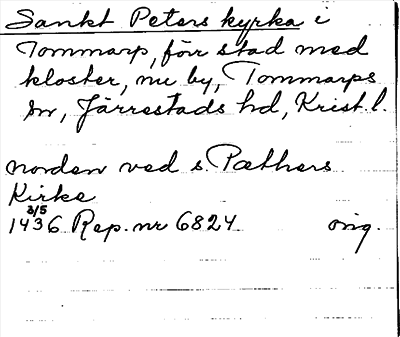 Sankt Peters kyrka i
Tommarp, förr stad med
kloster, nu by, Tommarps
sn, Järrestads hd, Krist. l.
norden ved s. Pæthers
Kirke
3/5
1436 Rep. nr 6824 orig.